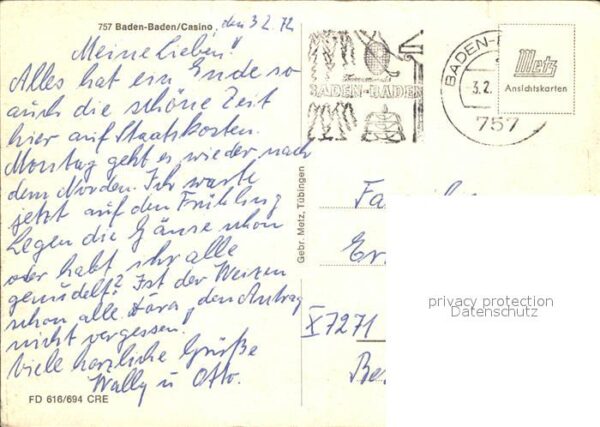 757 Baden-Baden/Casino, den 3 2. 72
Meine Lieben!
Alles hat ein Ende so
auch die schöne Zeit
hier auf Staatskosten.
Montag geht es wieder nach
dem Norden. Ich warte
jetzt auf den Frühling
Legen die Gänse schon
oder habt ihr alle
genudelt? Ist der Weizen
schon alle den Antrag
nicht vergessen!
Viele herzliche Grüße
Wally u Otto.
FD 616/694 CRE
Gebr. Metz, Tübingen
BADEN-BADEN
BADEN-
3.2.
757
Metz
Ansichtskarten
Fa
Er
X7271
Be
privacy protection
Datenschutz